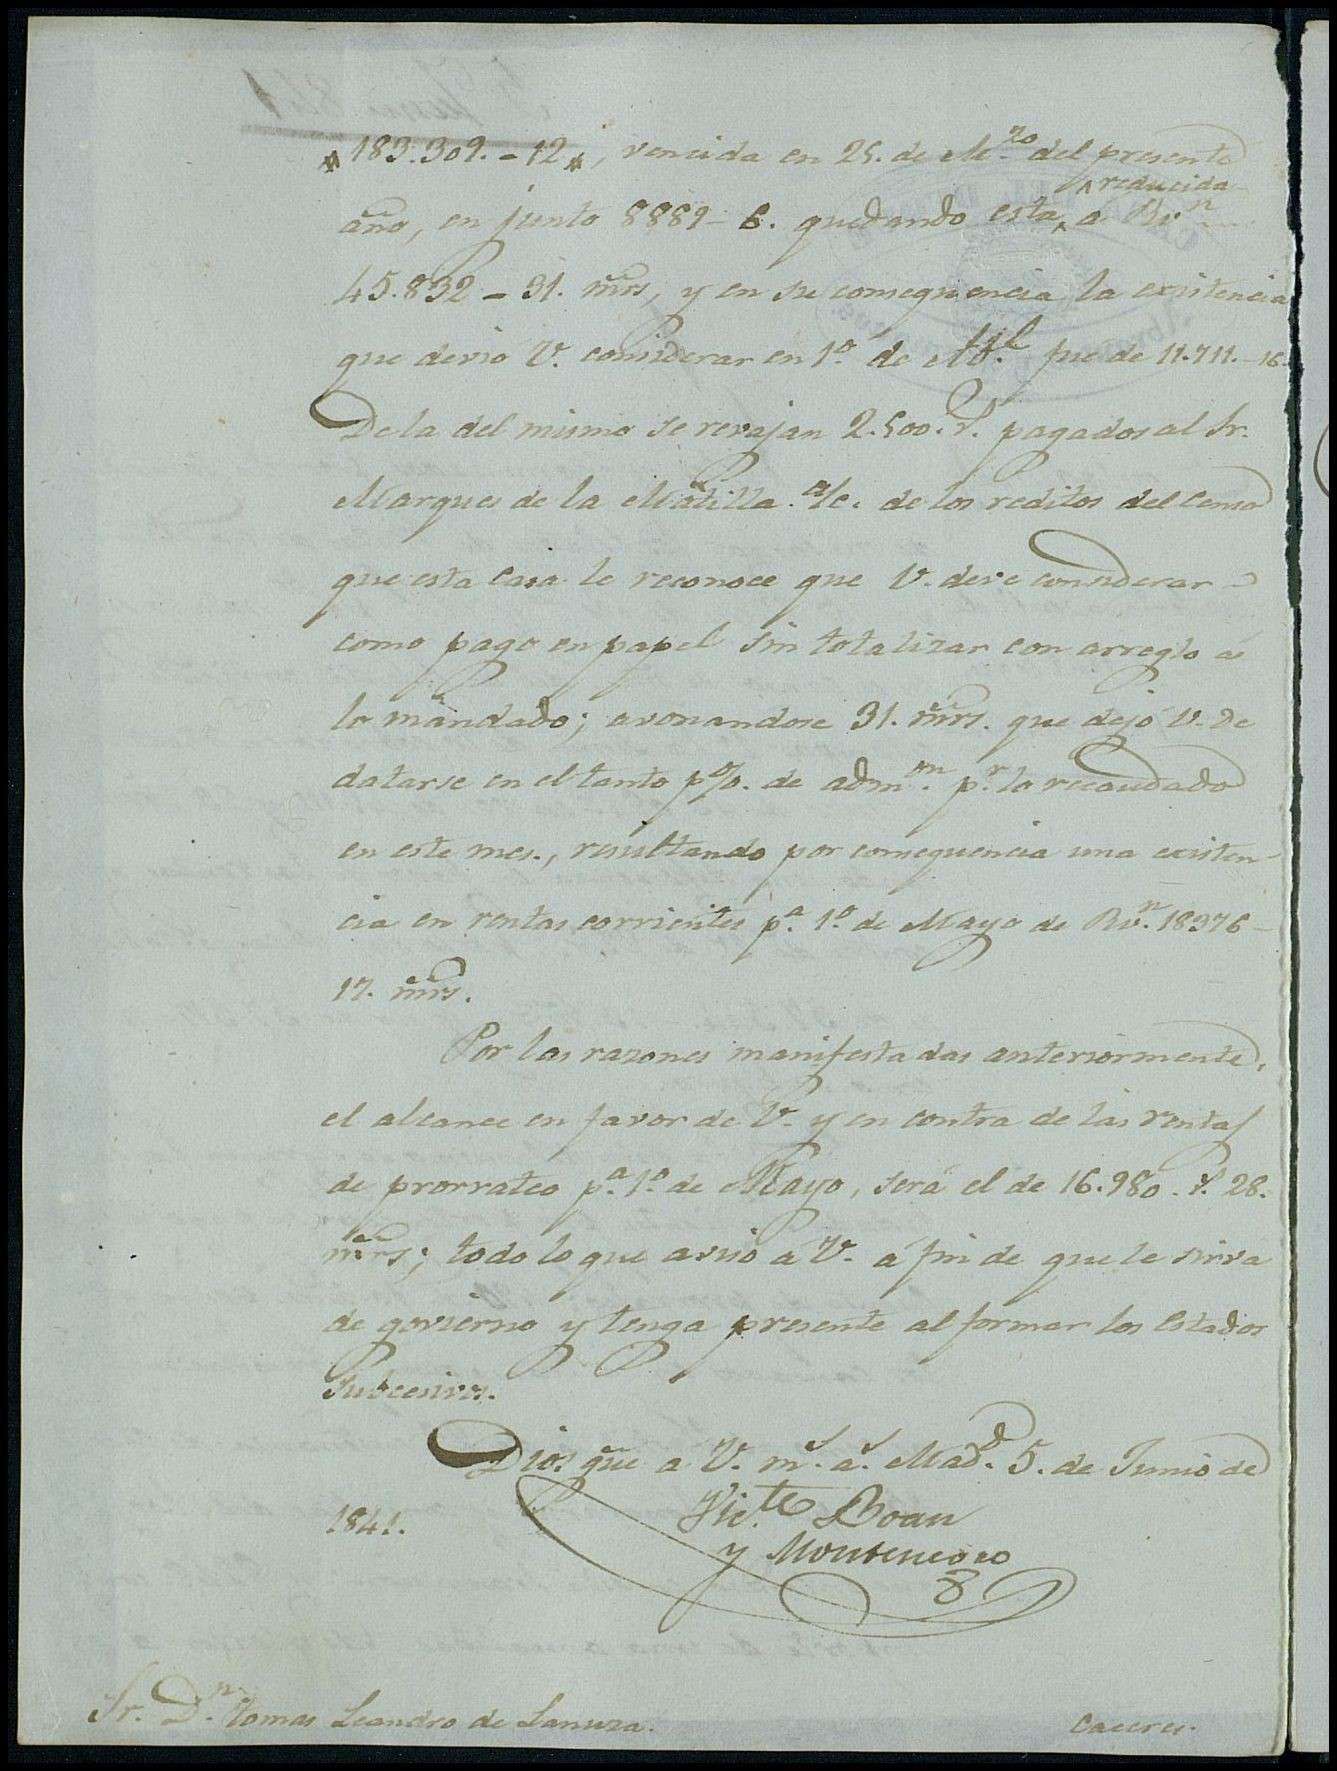 183.309.-12, vencida en 25. de M.zo del presente
año, en junto 8889-6. quedando esta, reducida á Rv.n
45.832-31. mrs, y en su consequencia la existencia
que devio V. considerar en 1.o de Ab.l fue de 11.711.-16.
De la del mismo se revajan 2.500. r. pagados al Sr.
Marques de la Matilla a/c. de los reditos del Censo
que esta Casa le reconoce que V. deve considerar
como pago en papel sin totalizar con arreglo á
lo mandado; avonandose 31. mrs. que dejó V. de
datarse en el tanto p%. de adm.on p.r lo recaudado
en este mes., resultando por consequencia una existen-
cia en rentas corrientes p.a 1.o de Mayo de Rv.n 18376-
17. mrs.
Por las razones manifestadas anteriormente,
el alcance en favor de V. y en contra de las rentas
de prorrateo p.a 1.o de Mayo, será el de 16.980. r. 28.
mrs; todo lo que aviso a V. á fin de que le sirva
de govierno y tenga presente al formar los Estados
Subcesivos.
Dios gue á V. m.s a.s Mad.d 5. de Junio de
1841.
Vic.te Boan
y Montenegro
Sr. D.n Tomas Leandro de Lanuza.
Caceres.